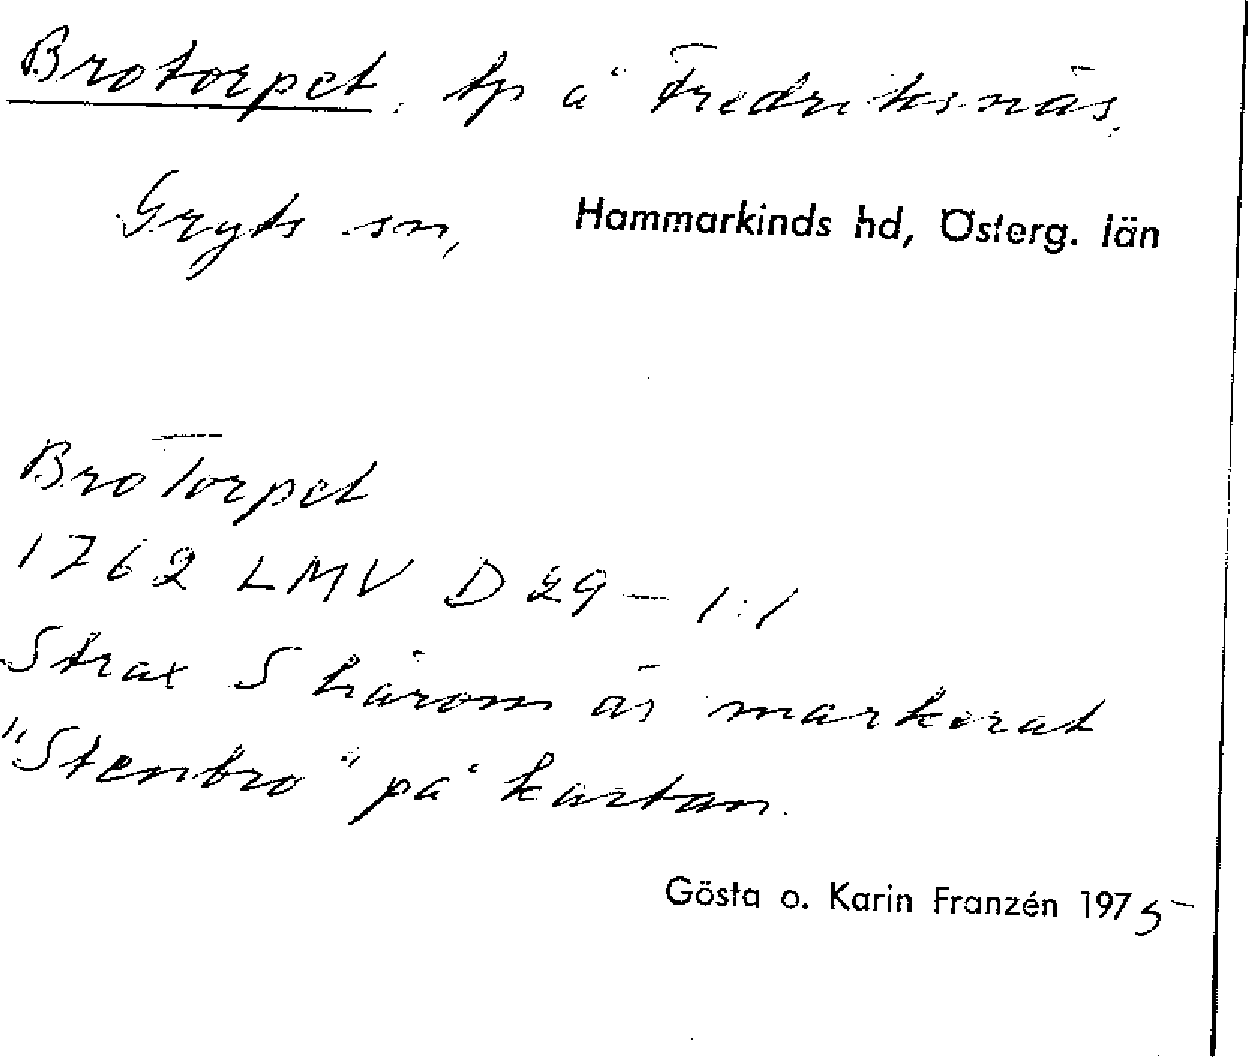 Brotorpet, tp å Fredriksnäs,
Gryts sn, Hammarkinds hd, Österg. län
Brotorpet
1762 LMV D 29 – 1:1
Strax S härom är markerat
"Stenbro" på kartan.
Gösta o. Karin Franzén 1975